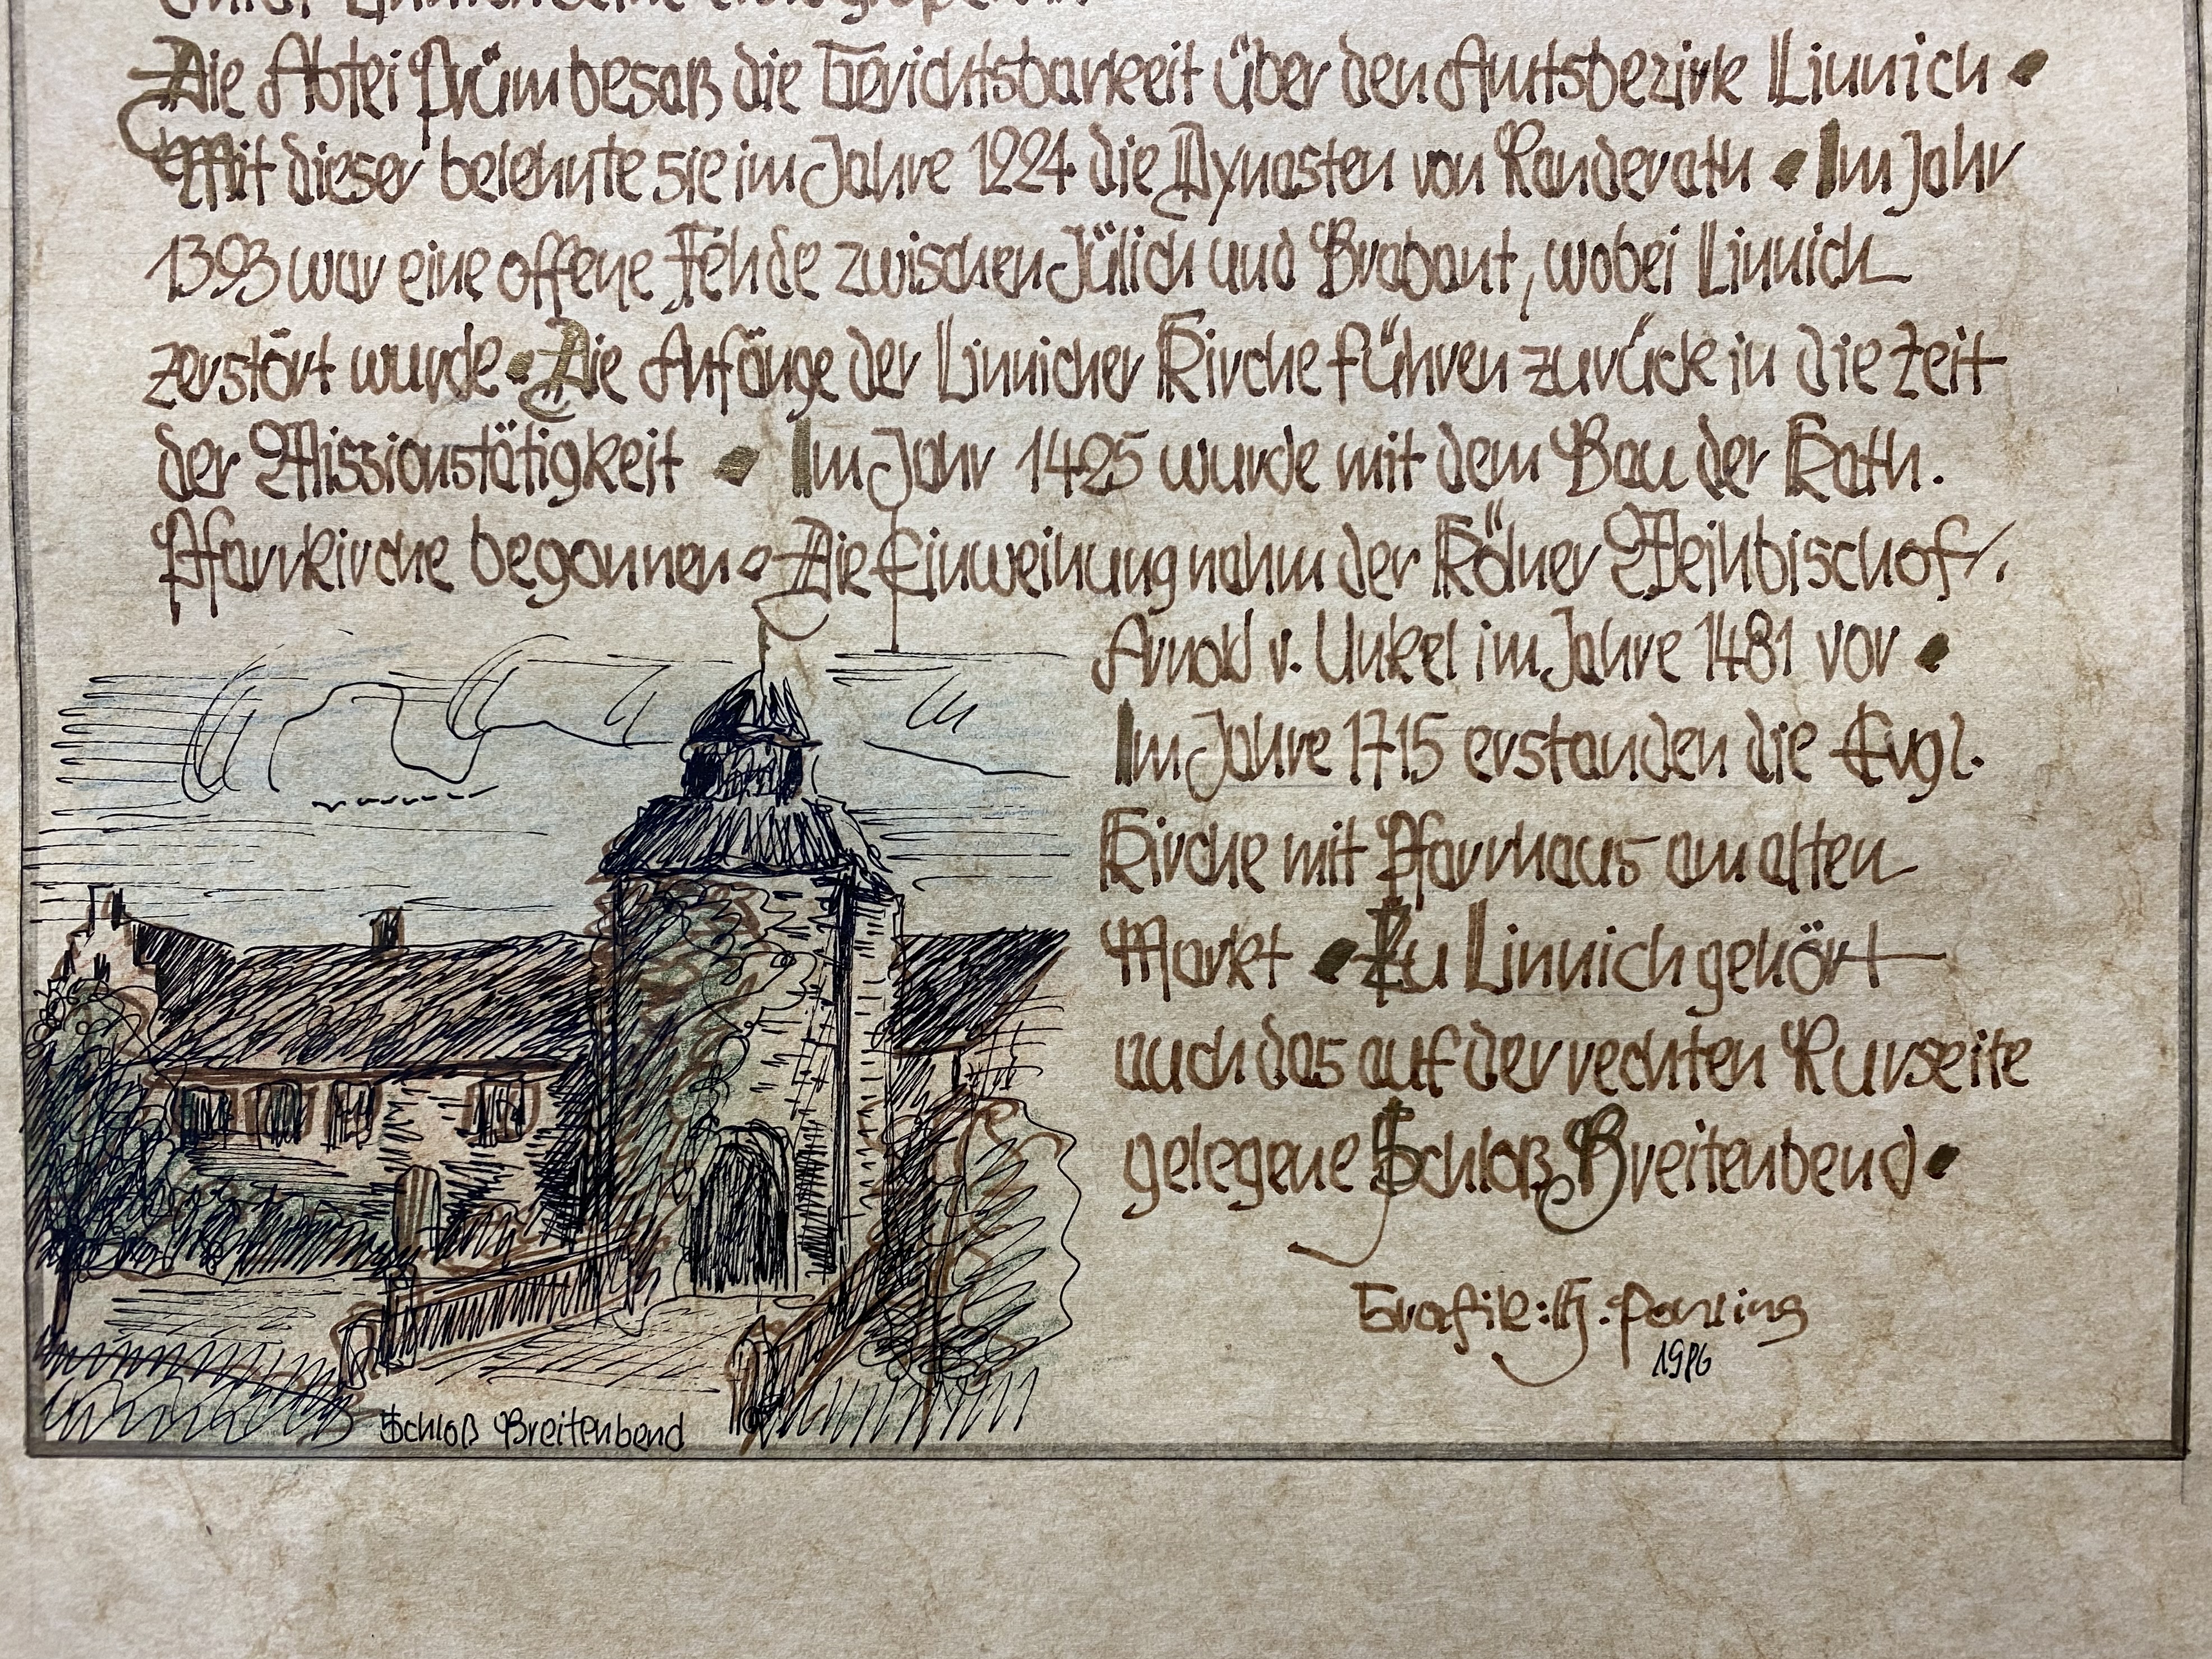 Die Abtei Prüm besaß die Gerichtsbarkeit über den Amtsbezirk Linnich •
Mit dieser belehnte sie im Jahre 1224 die Dynasten von Randerath • Im Jahr
1393 war eine offene Fehde zwischen Jülich und Brabant, wobei Linnich
zerstört wurde • Die Anfänge der Linnicher Kirche führen zurück in die Zeit
der Missionstätigkeit • Im Jahr 1425 wurde mit dem Bau der Kath.
Pfarrkirche begonnen • Die Einweihung nahm der Kölner Weihbischof
Arnold v. Unkel im Jahre 1481 vor •
Im Jahre 1715 erstanden die Evgl.
Kirche mit Pfarrhaus am alten
Markt • Zu Linnich gehört
auch das auf der rechten Rurseite
gelegene Schloß Breitenbend •
Grafik: H.
1986
Schloß Breitenbend